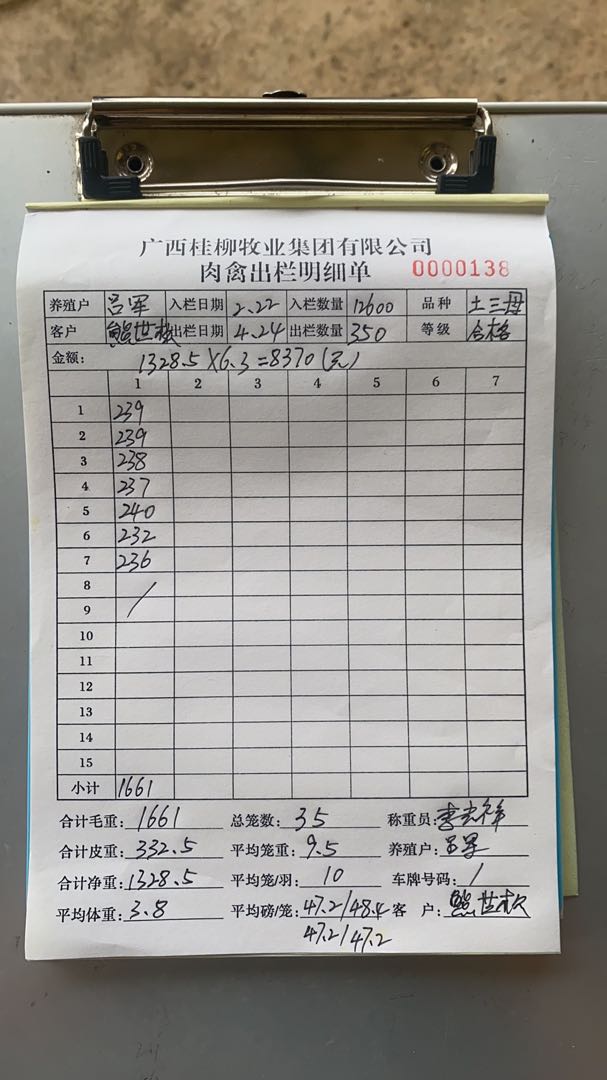 广西桂柳牧业集团有限公司
肉禽出栏明细单 0000138
养殖户 吕军 入栏日期 2.22 入栏数量 12600 品种 土三母
客户 熊世权 出栏日期 4.24 出栏数量 350 等级 合格
金额: 1328.5×6.3=8370(元)
1 2 3 4 5 6 7
1 239
2 239
3 238
4 237
5 240
6 232
7 236
8 /
9
10
11
12
13
14
15
小计 1661
合计毛重: 1661 总笼数: 35 称重员: 李
合计皮重: 332.5 平均笼重: 9.5 养殖户: 吕军
合计净重: 1328.5 平均笼/羽: 10 车牌号码: /
平均体重: 3.8 平均磅/笼: 47.2/48.4 客 户: 熊世权
47.2/47.2